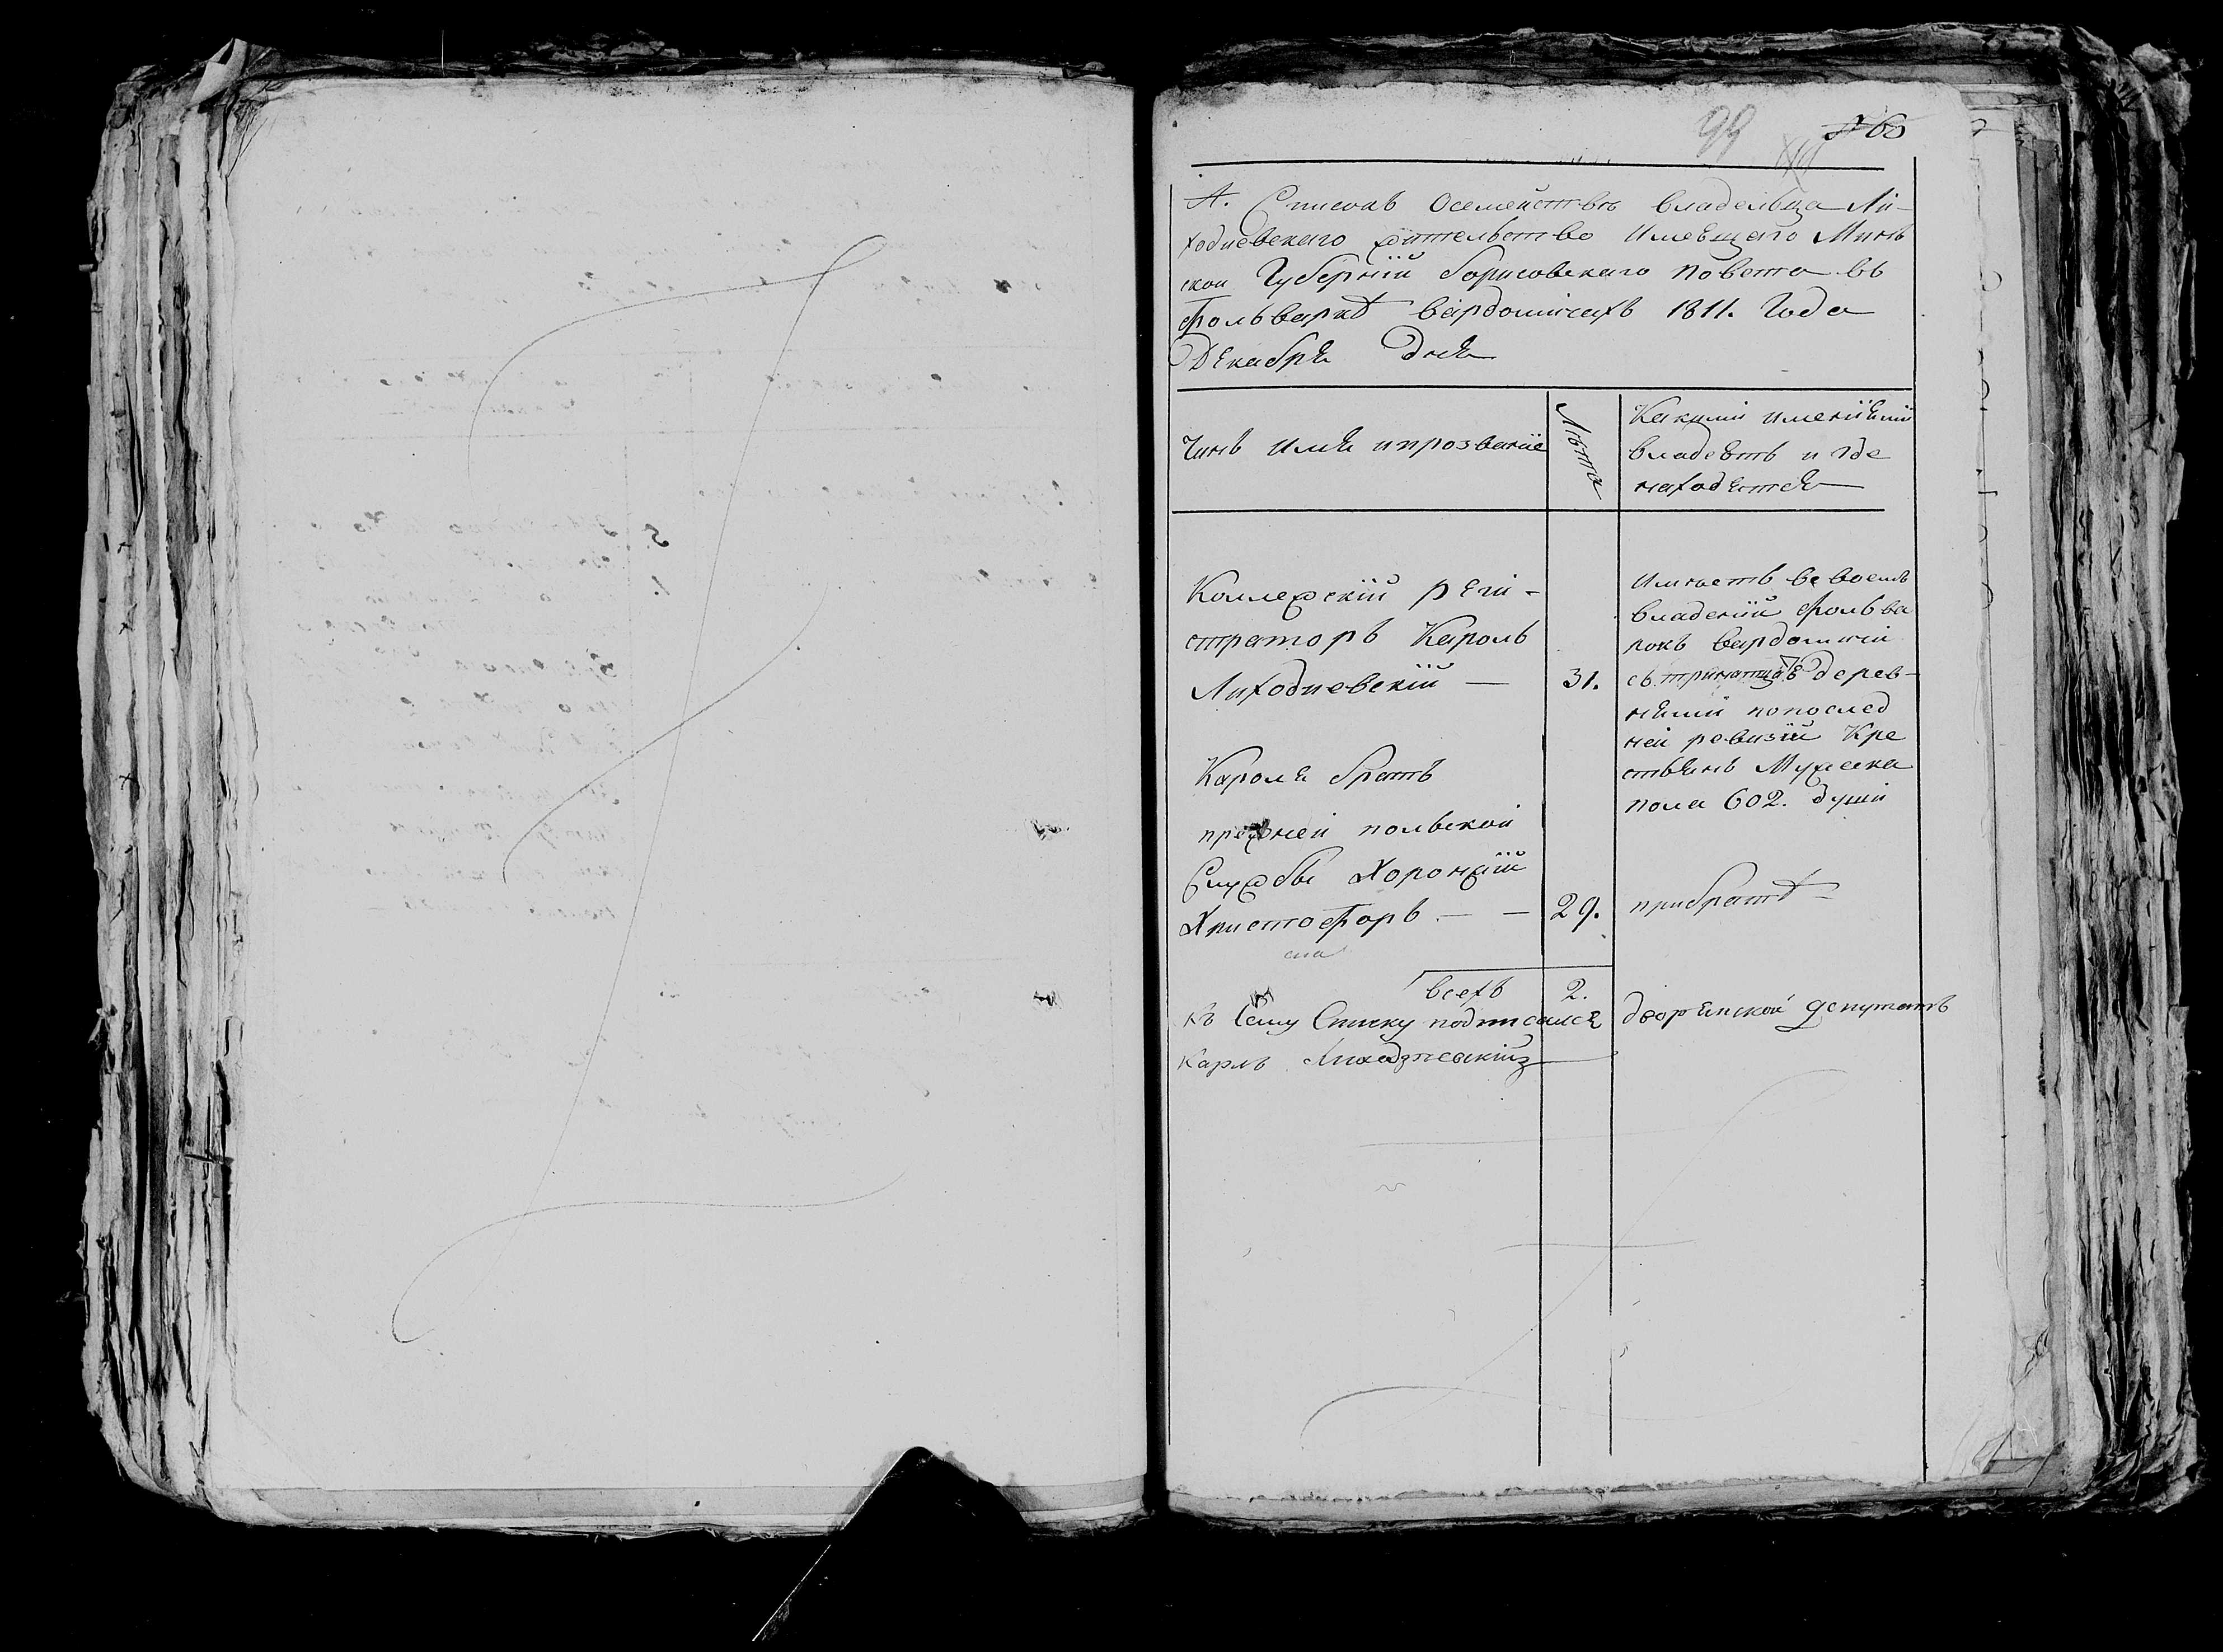 99
№ 60
А. Списокъ Осемействе владельца Ли-
ходиевскаго жительство имеющаго Минь
скои Губерніи борисовскаго повета въ
фольваркѣ вардомичахъ 1811. Года
Декабря дня
Чинъ имя ипрозваніе
Лѣта
Какими именіями
владеетъ и где
находятся
Коллежскій реги-
страторъ Кароль
Лиходиевскій — 31.
Имеетъ въ воемъ
владеніи фольва
рокъ вардомичи
съ тринатцатъ дерев-
нями попослед
ней ревизіи Кре
стьянъ Мужеска
пола 602. души
Кароля братъ
прежней польской
Службы Хоронжій
Христофоръ — — 29.
прибратѣ —
всехъ 2.
къ Сему Списку подписался дворянской депутатъ
Карлъ Лиходзиевскій